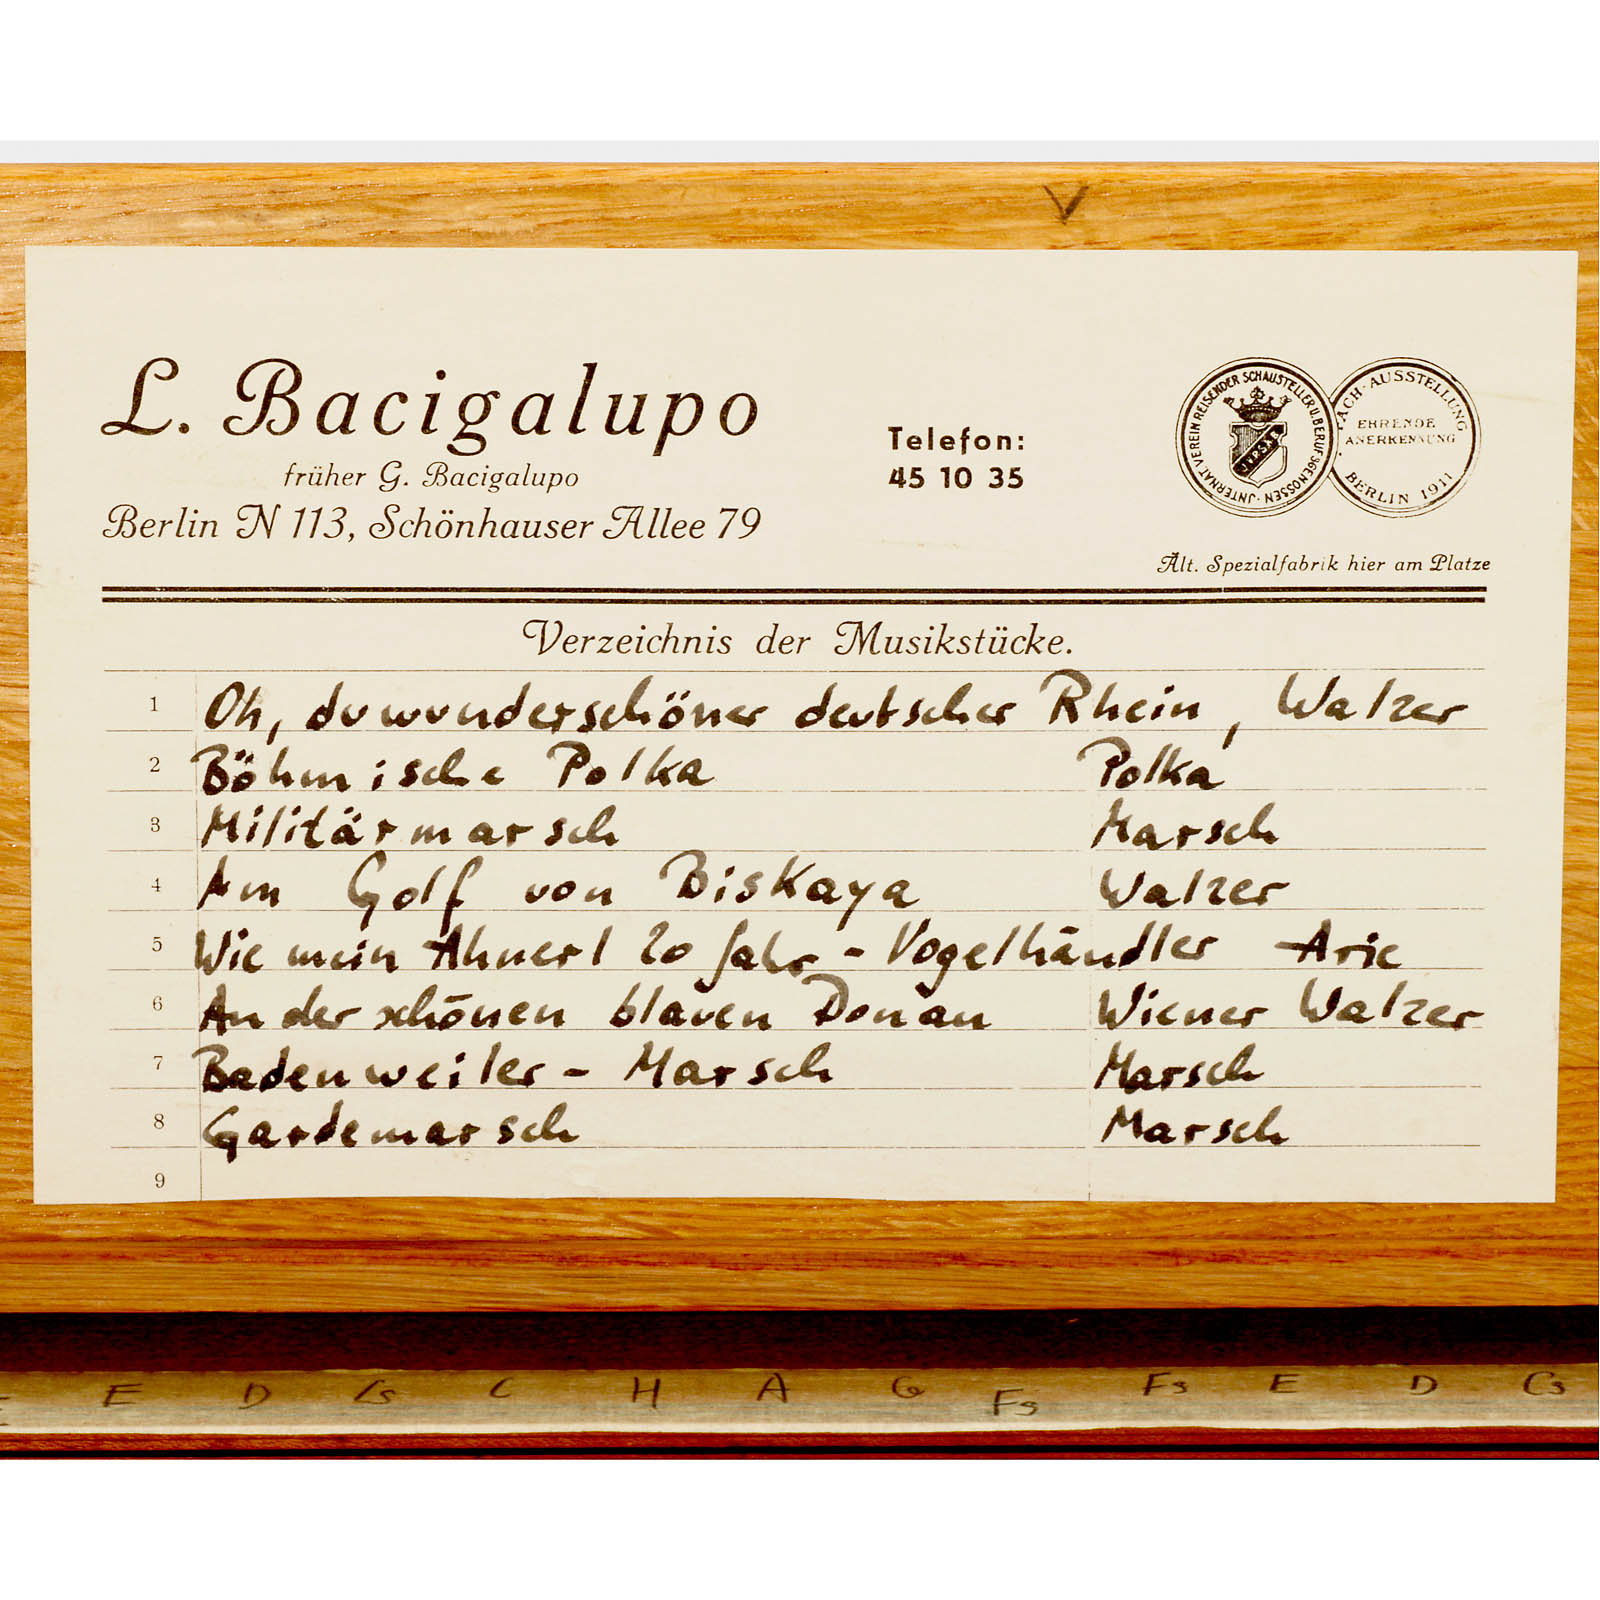 L. Bacigalupo
früher G. Bacigalupo
Berlin N 113, Schönhauser Allee 79
Telefon:
45 10 35
INTERNAT. VEREIN REISENDER SCHAUSTELLER U. BERUFSGENOSSEN
I.V.R.S.A.B.
FACH-AUSSTELLUNG
EHRENDE
ANERKENNUNG
BERLIN 1911
Ält. Spezialfabrik hier am Platze
Verzeichnis der Musikstücke.
1 Oh, du wunderschöner deutscher Rhein, Walzer
2 Böhmische Polka Polka
3 Militärmarsch Marsch
4 Am Golf von Biskaya Walzer
5 Wie mein Ahnerl 20 Jahr - Vogelhändler Arie
6 An der schönen blauen Donau Wiener Walzer
7 Badenweiler - Marsch Marsch
8 Gardemarsch Marsch
9
E D Cs C H A G Fs Fs E D Cs